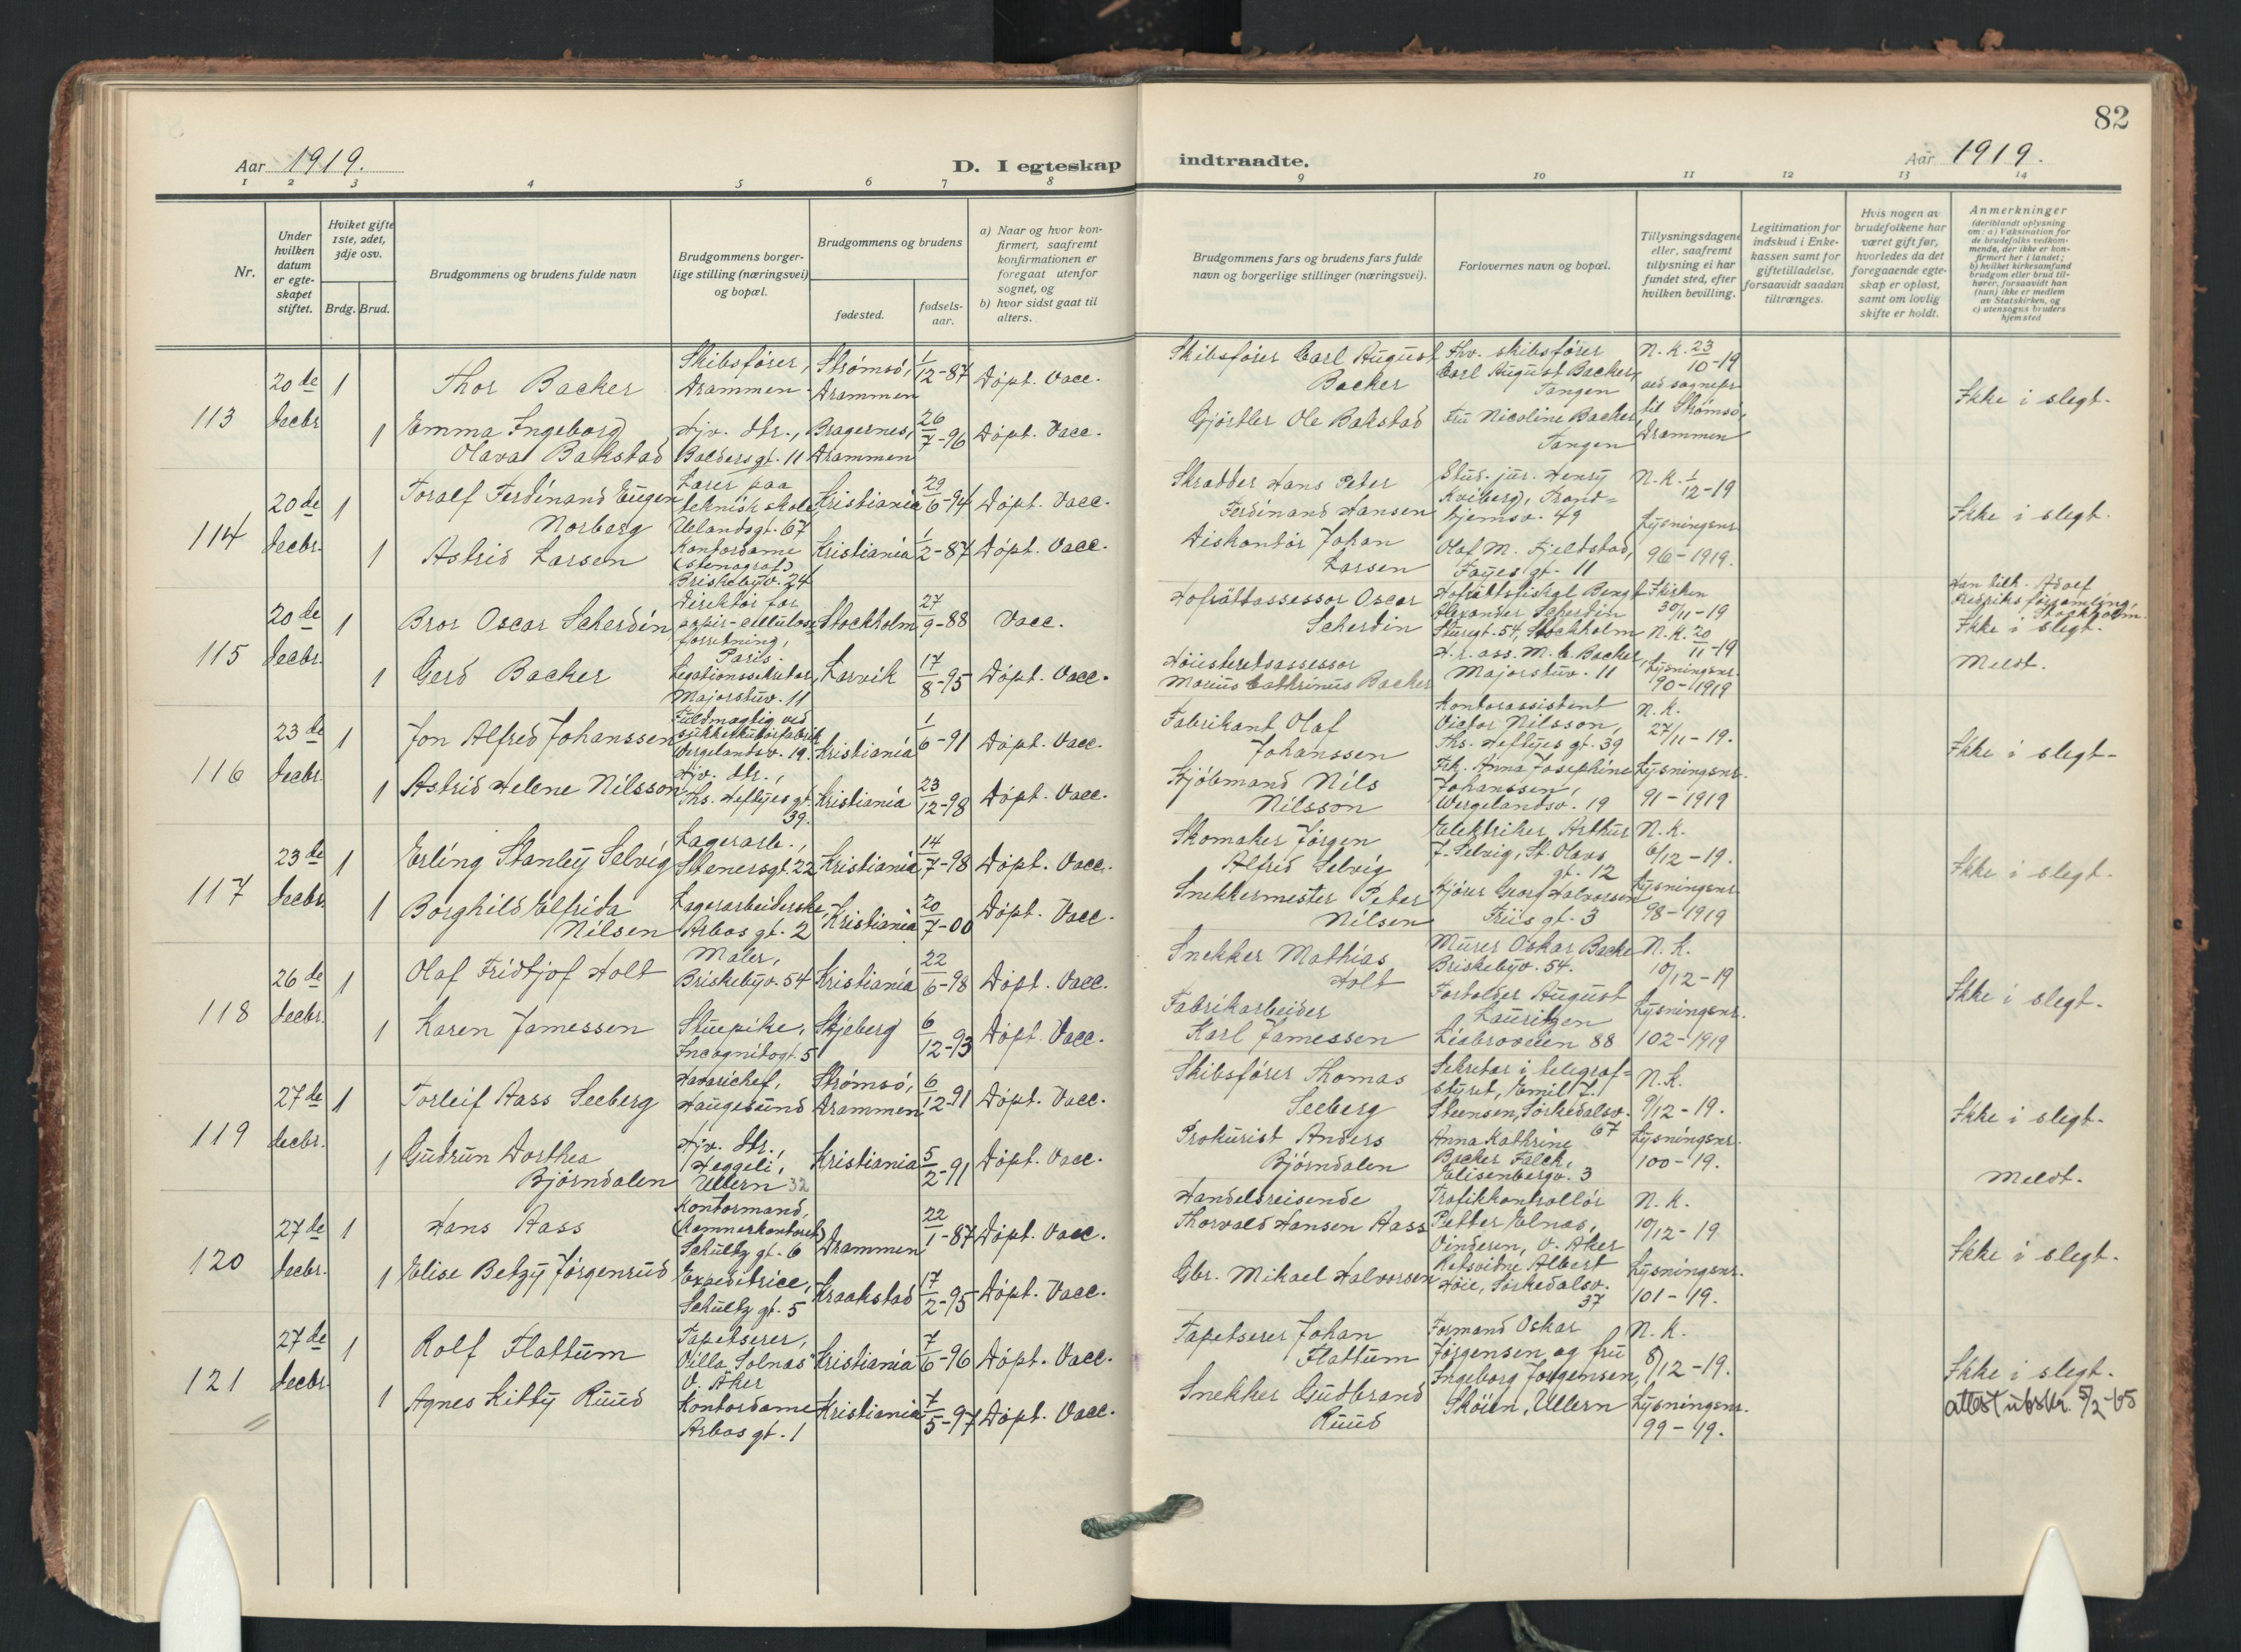 82
Aar 1919.
D. I egteskap indtraadte.
Aar 1919.
1 2 3 4 5 6 7 8 9 10 11 12 13 14
Nr.
Under hvilken datum er egteskapet stiftet.
Hviket gifte 1ste, 2det, 3dje osv.
Brdg. Brud.
Brudgommens og brudens fulde navn
Brudgommens borgerlige stilling (næringsvei) og bopæl.
Brudgommens og brudens
fødested.
fødselsaar.
a) Naar og hvor konfirmert, saafremt konfirmationen er foregaat utenfor sognet, og
b) hvor sidst gaat til alters.
Brudgommens fars og brudens fars fulde navn og borgerlige stillinger (næringsvei).
Forlovernes navn og bopæl.
Tillysningsdagene eller, saafremt tillysning ei har fundet sted, efter hvilken bevilling.
Legitimation for indskud i Enkekassen samt for giftetilladelse, forsaavidt saadan tiltrænges.
Hvis nogen av brudefolkene har været gift før, hvorledes da det foregaaende egteskap er opløst, samt om lovlig skifte er holdt.
Anmerkninger
(deriblandt oplysning om: a) Vaksination for de brudefolks vedkommende, der ikke er konfirmert her i landet; b) hvilket kirkesamfund brudgom eller brud tilhører, forsaavidt han (hun) ikke er medlem av Statskirken, og c) utensogns bruders hjemsted
113
20de Decbr
1
Thor Backer
Skibsfører, Drammen
Strømsø, Drammen
1/12-87
Døpt. Vacc.
Skibsfører Carl August Backer
Fhv. skibsfører Carl August Backer, Tangen
N. K. 23/10-19 ved sognepr. til Strømsø, Drammen
Ikke i slegt.
1
Emma Ingeborg Olava Bakstad
Hjv. dtr., Baldersgt. 11
Bragernes, Drammen
26/7-96
Døpt. Vacc.
Gjørtler Ole Bakstad
Fru Nicoline Backer, Tangen
114
20de Decbr.
1
Toralf Ferdinand Eugen Norberg
Lærer paa teknisk skole, Uelandsgt. 67
Kristiania
29/6-94
Døpt. Vacc.
Skrædder Hans Peter Ferdinand Hansen
Stud. jur. Henry Kviberg, Trondhjemsv. 49
N. K. 1/12-19
Lysningsnr. 96-1919.
Ikke i slegt.
1
Astrid Larsen
Kontordame (stenograf) Briskebyv. 24
Kristiania
1/2-87
Døpt. Vacc.
Diskontør Johan Larsen
Olaf M. Fjeldstad, Fayes gt. 11
115
20de Decbr.
1
Bror Oscar Scherdin
Direktør for papir-celluloseforretning, Paris.
Stockholm
27/9-88
Vacc.
Hofrättassessor Oscar Scherdin
Hofrättsfiskal Bengt Alexander Scherdin Sturegt. 54, Stockholm
F. kirken 30/11-19
N. K. 20/11-19
Lysningsnr. 90-1919
Han tilh. Adolf Fredriks församling, Stockholm.
Ikke i slegt.
Meldt.
1
Gerd Backer
Legationssekretær, Majorstuv. 11
Larvik
17/8-95
Døpt. Vacc.
Høiesteretsassessor Marius Cathrinus Backer
H.r. ass. M. C. Backer, Majorstuv. 11
116
23de Decbr.
1
Jon Alfred Johanssen
Fuldmægtig ved sukkertøifabrik Wergelandsv. 19.
Kristiania
1/6-91
Døpt. Vacc.
Fabrikant Olaf Johanssen
Kontorassistent Victor Nilsson, Ths. Heftyes gt. 39
N. K. 27/11-19.
Lysningsnr. 91-1919
Ikke i slegt-
1
Astrid Helene Nilsson
Hjv. dtr., Ths. Heftyes gt. 39.
Kristiania
23/12-98
Døpt. Vacc.
Kjøbmand Nils Nilsson
Frk. Anna Josephine Johanssen, Wergelandsv. 19
117
23de Decbr.
1
Erling Stanley Selvig
Lagerarb., Stenersgt. 22
Kristiania
14/7-98
Døpt. Vacc.
Skomaker Jørgen Alfred Selvig
Elektriker Arthur J. Selvig, St. Olavs gt. 12
N. K. 6/12-19.
Lysningsnr. 98-1919
Ikke i slegt.
1
Borghild Elfrida Nilsen
Lagerarbeiderske, Arbos gt. 2
Kristiania
20/7-00
Døpt. Vacc.
Snekkermester Peter Nilsen
Kjører Georg Halvorsen Friis gt. 3
118
26de Decbr.
1
Olaf Fridtjof Holt
Maler, Briskebyv. 54
Kristiania
22/6-98
Døpt. Vacc.
Snekker Mathias Holt
Murer Oskar Backe Briskebyv. 54.
N. K. 10/12-19
Lysningsnr. 102-1919
Ikke i slegt.
1
Karen Jamessen
Stuepike, Incognitogt. 5
Skjeberg
6/12-93
Døpt. Vacc.
Fabrikarbeider Karl Jamessen
Forvalder August Lauritzen Liabroveien 88
119
27de Decbr.
1
Torleif Aass Seeberg
Havarichef, Haugesund
Strømsø, Drammen
6/12-91
Døpt. Vacc.
Skibsfører Thomas Seeberg
Sekretær i telegrafstyret, Emil Z. Steensen, Sørkedalsv. 67
N. K. 9/12-19.
Lysningsnr. 100-19.
Ikke i slegt.
Meldt.
1
Gudrun Dorthea Bjørndalen
Hjv. dtr., Heggeli, Ullern 32
Kristiania
5/2-91
Døpt. Vacc.
Prokurist Anders Bjørndalen
Anna Kathrine Backer Falch, Elisenbergv. 3
120
27de Decbr.
1
Hans Aass
Kontormand, (Kæmnerkontoret) Schultz gt. 6
Drammen
22/1-87
Døpt. Vacc.
Handelsreisende Thorvald Hansen Aass
Trafikkontrollør Petter Elnæs, Vinderen, V. Aker
N. K. 10/12-19
Lysningsnr. 101-19.
Ikke i slegt.
1
Elise Betzy Jørgenrud
Expeditrice, Schultz gt. 5
Kraakstad
17/2-95
Døpt. Vacc.
Gbr. Mikael Halvorsen
Retsvidne Albert Høie, Sørkedalsv. 37
121
27de Decbr.
1
Rolf Flattum
Tapetserer, Villa "Solnæs" V. Aker
Kristiania
7/6-96
Døpt. Vacc.
Tapetserer Johan Flattum
Formand Oskar Jørgensen og fru Ingeborg Jørgensen, Skøien, Ullern
N. K. 8/12-19.
Lysningsnr. 99-19.
Ikke i slegt.
attest utskr. 5/2-65
1
Agnes Kitty Ruud
Kontordame Arbos gt. 1
Kristiania
7/5-97
Døpt. Vacc.
Snekker Gudbrand Ruud